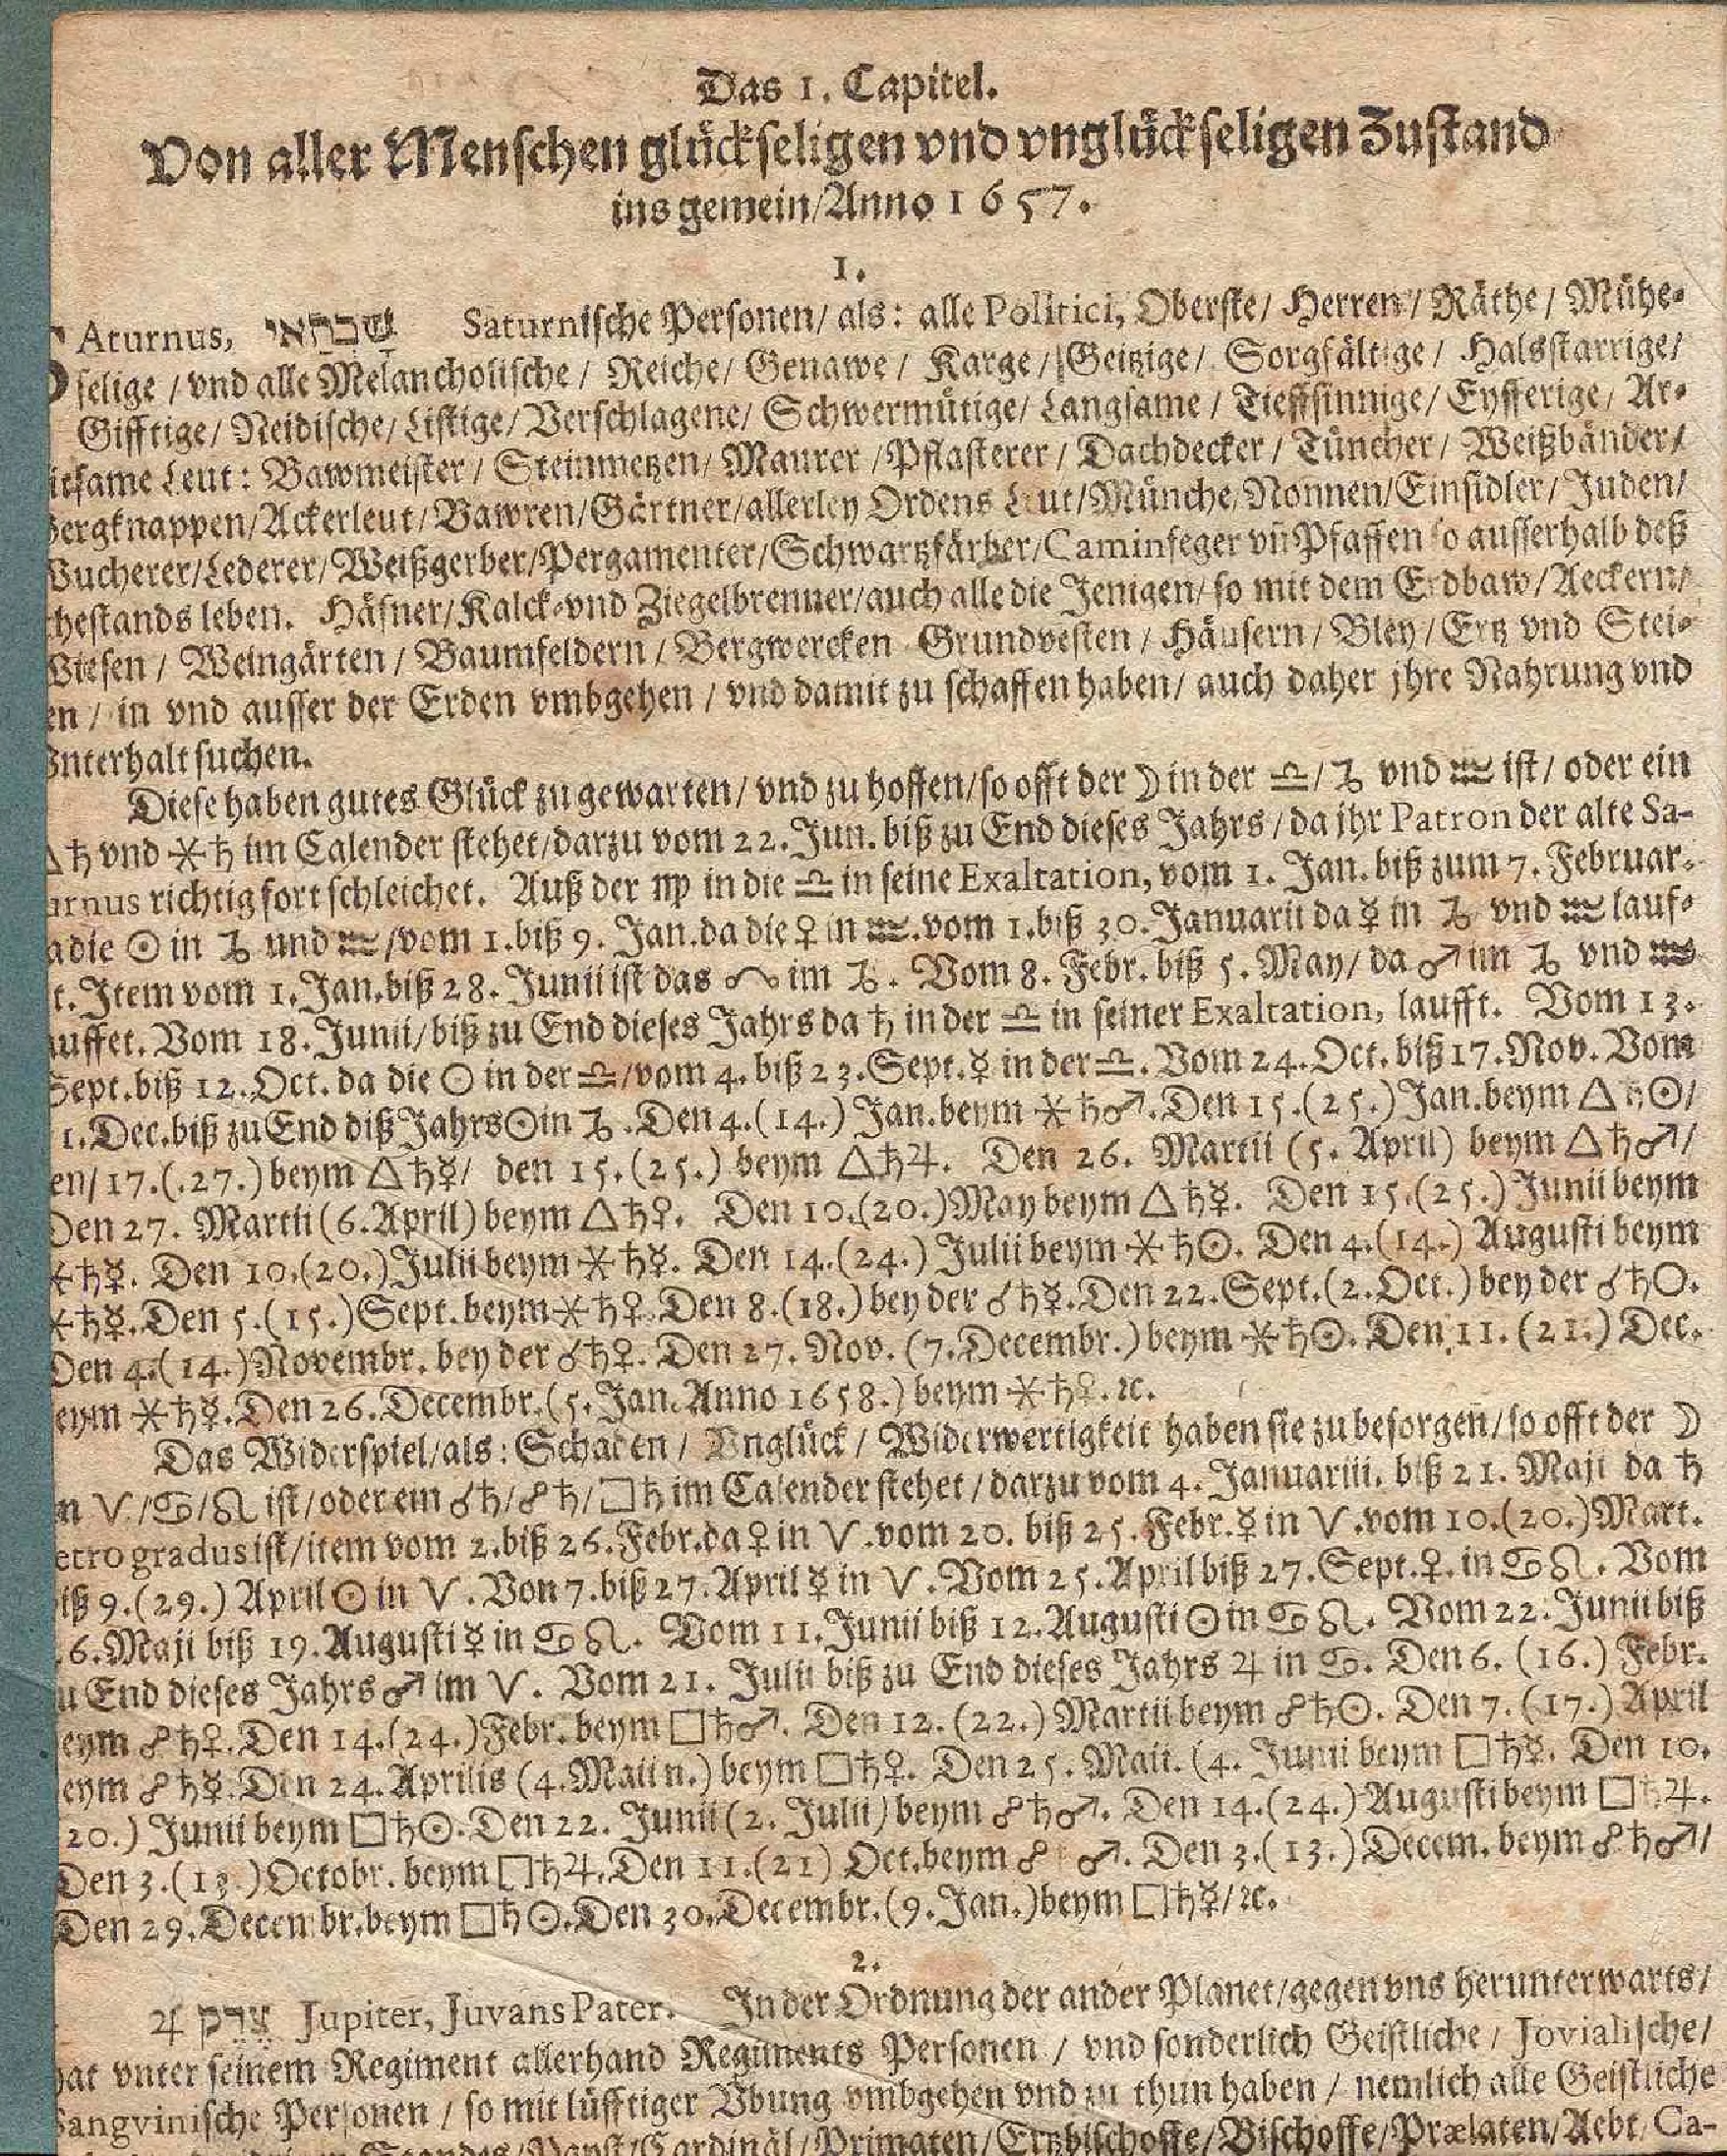 Das 1. Capitel.
Von aller Menschen glückseligen vnd vnglückseligen Zustand
ins gemein/Anno 1657.
1.
SAturnus, שבתאי Saturnische Personen/ als: alle Politici, Oberste/ Herren/ Räthe/ Mühe-
selige / vnd alle Melancholische / Reiche/ Genawe / Karge / Geitzige / Sorgfältige / Halsstarrige/
Gifftige/ Neidische/ Listige/ Verschlagene/ Schwermütige/ Langsame / Tieffsinnige/ Eyfferige/ Ar-
itsame Leut: Bawmeister / Steinmetzen/ Maurer /Pflasterer / Dachdecker / Tüncher / Weißbänder/
Bergknappen/Ackerleut/Bawren/Gärtner/allerley Ordens Leut/Münche/Nonnen/Einsidler/Juden/
Wucherer/Lederer/Weißgerber/Pergamenter/Schwartzfärber/Caminfeger vñ Pfaffen so ausserhalb deß
hestands leben. Häfner/Kalck-vnd Ziegelbrenner/auch alle die Jenigen/so mit dem Erdbaw/Aeckern/
Wiesen / Weingärten / Baumfeldern / Bergwercken Grundvesten / Häusern/ Bley / Ertz vnd Stei-
en / in vnd ausser der Erden vmbgehen / vnd damit zu schaffen haben/ auch daher jhre Nahrung vnd
Vnterhalt suchen.
Diese haben gutes Glück zu gewarten/ vnd zu hoffen/so offt der ☽ in der ♎/ ♑ vnd ♒ ist/ oder ein
△♄ vnd ⚹♄ im Calender stehet/darzu vom 22. Jun. biß zu End dieses Jahrs / da jhr Patron der alte Sa-
urnus richtig fort schleichet. Auß der ♍ in die ♎ in seine Exaltation, vom 1. Jan. biß zum 7. Februar.
a die ☉ in ♑ und ♒/vom 1. biß 9. Jan.da die ♀ in ♒.vom 1.biß 30. Januarii da ☿ in ♑ vnd ♒ lauf-
t. Item vom 1. Jan.biß 28. Junii ist das ☊ im ♑. Vom 8. Febr. biß 5. May/ da ♂ im ♑ vnd ♒
auffet. Vom 18. Junii/ biß zu End dieses Jahrs da ♄ in der ♎ in seiner Exaltation, laufft. Vom 13.
Sept. biß 12. Oct. da die ☉ in der ♎/vom 4. biß 23.Sept. ☿ in der ♎. Vom 24. Oct. biß 17. Nov. Vom
1. Dec.biß zu End diß Jahrs ☉ in ♑. Den 4.(14.) Jan.beym ⚹♄♂.Den 15.(25.) Jan.beym △♄☉/
en/ 17.(.27.) beym △♄☿/ den 15.(25.) beym △♄♃. Den 26. Martii (5. April) beym △♄♂/
Den 27. Martii (6.April) beym △♄♀. Den 10.(20.) May beym △♄☿. Den 15.(25.) Junii beym
⚹♄☿. Den 10.(20.) Julii beym ⚹♄☿. Den 14.(24.) Julii beym ⚹♄☉. Den 4.(14.) Augusti beym
⚹♄☿. Den 5.(15.) Sept. beym ⚹♄♀. Den 8.(18.) bey der ☌♄☿.Den 22. Sept.(2. Oct.) bey der ☌♄☉.
Den 4.(14.) Novembr. bey der ☌♄♀. Den 27. Nov. (7. Decembr.) beym ⚹♄☉. Den 11. (21.) Dec.
eym ⚹♄☿.Den 26. Decembr. (5. Jan. Anno 1658.) beym ⚹♄♀.ꝛc.
Das Widerspiel/als: Schaden / Vnglück / Widerwertigkeit haben sie zu besorgen/ so offt der ☽
n ♈/♋/♌ ist/oder ein ☌♄/☍♄/□♄ im Calender stehet / darzu vom 4. Januariii. biß 21. Maji da ♄
etrogradus ist/item vom 2.biß 26.Febr.da ♀ in ♈.vom 20. biß 25. Febr. ☿ in ♈.vom 10.(20.) Mart.
iß 9.(29.) April ☉ in ♈. Von 7. biß 27. April ☿ in ♈. Vom 25. April biß 27. Sept. ♀. in ♋ ♌. Vom
6. Maji biß 19. Augusti ☿ in ♋ ♌. Vom 11. Junii biß 12. Augusti ☉ in ♋ ♌. Vom 22. Junii biß
u End dieses Jahrs ♂ im ♈. Vom 21. Julii biß zu End dieses Jahrs ♃ in ♋. Den 6. (16.) Febr.
eym ☍♄♀. Den 14.(24.) Febr. beym □♄♂. Den 12. (22.) Martii beym ☍♄☉. Den 7. (17.) April
eym ☍♄☿.Den 24. Aprilis (4. Maii n.) beym □♄♀. Den 25. Maii. (4. Junii beym □♄☿. Den 10.
20.) Junii beym □♄☉. Den 22. Junii (2. Julii) beym ☍♄♂. Den 14.(24.) Augusti beym □♄♃.
Den 3.(13.) Octobr. beym □♄♃.Den 11.(21) Oct.beym ☍ ♂. Den 3.(13.) Decem. beym ☍♄♂/
Den 29. Decembr.beym □♄☉.Den 30. Decembr.(9. Jan.) beym □♄☿/ꝛc.
2.
♃ צדק Jupiter, Juvans Pater. In der Ordnung der ander Planet/gegen vns herunterwarts/
hat vnter seinem Regiment allerhand Regiments Personen / vnd sonderlich Geistliche / Jovialische/
Sangvinische Personen / so mit lüfftiger Vbung vmbgehen vnd zu thun haben / nemlich alle Geistliche
Standes/Papst/Cardinäl/Primaten/Ertzbischoffe/Bischoffe/Prælaten/Aebt/Ca-